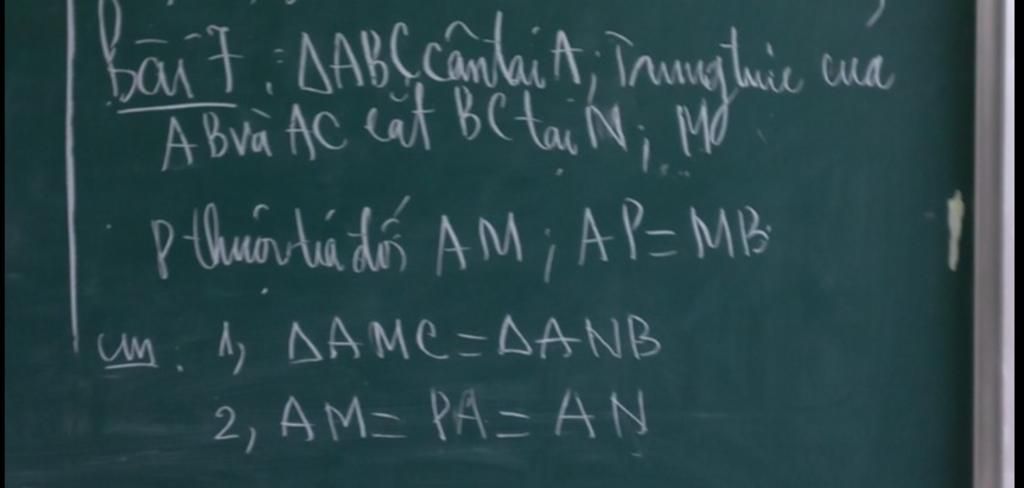 Bài 7 : ΔABC cân tại A; Trung trực của
AB và AC cắt BC tại N; M
P thuộc tia đối AM ; AP = MB
cm. 1, ΔAMC = ΔANB
2, AM = PA = AN